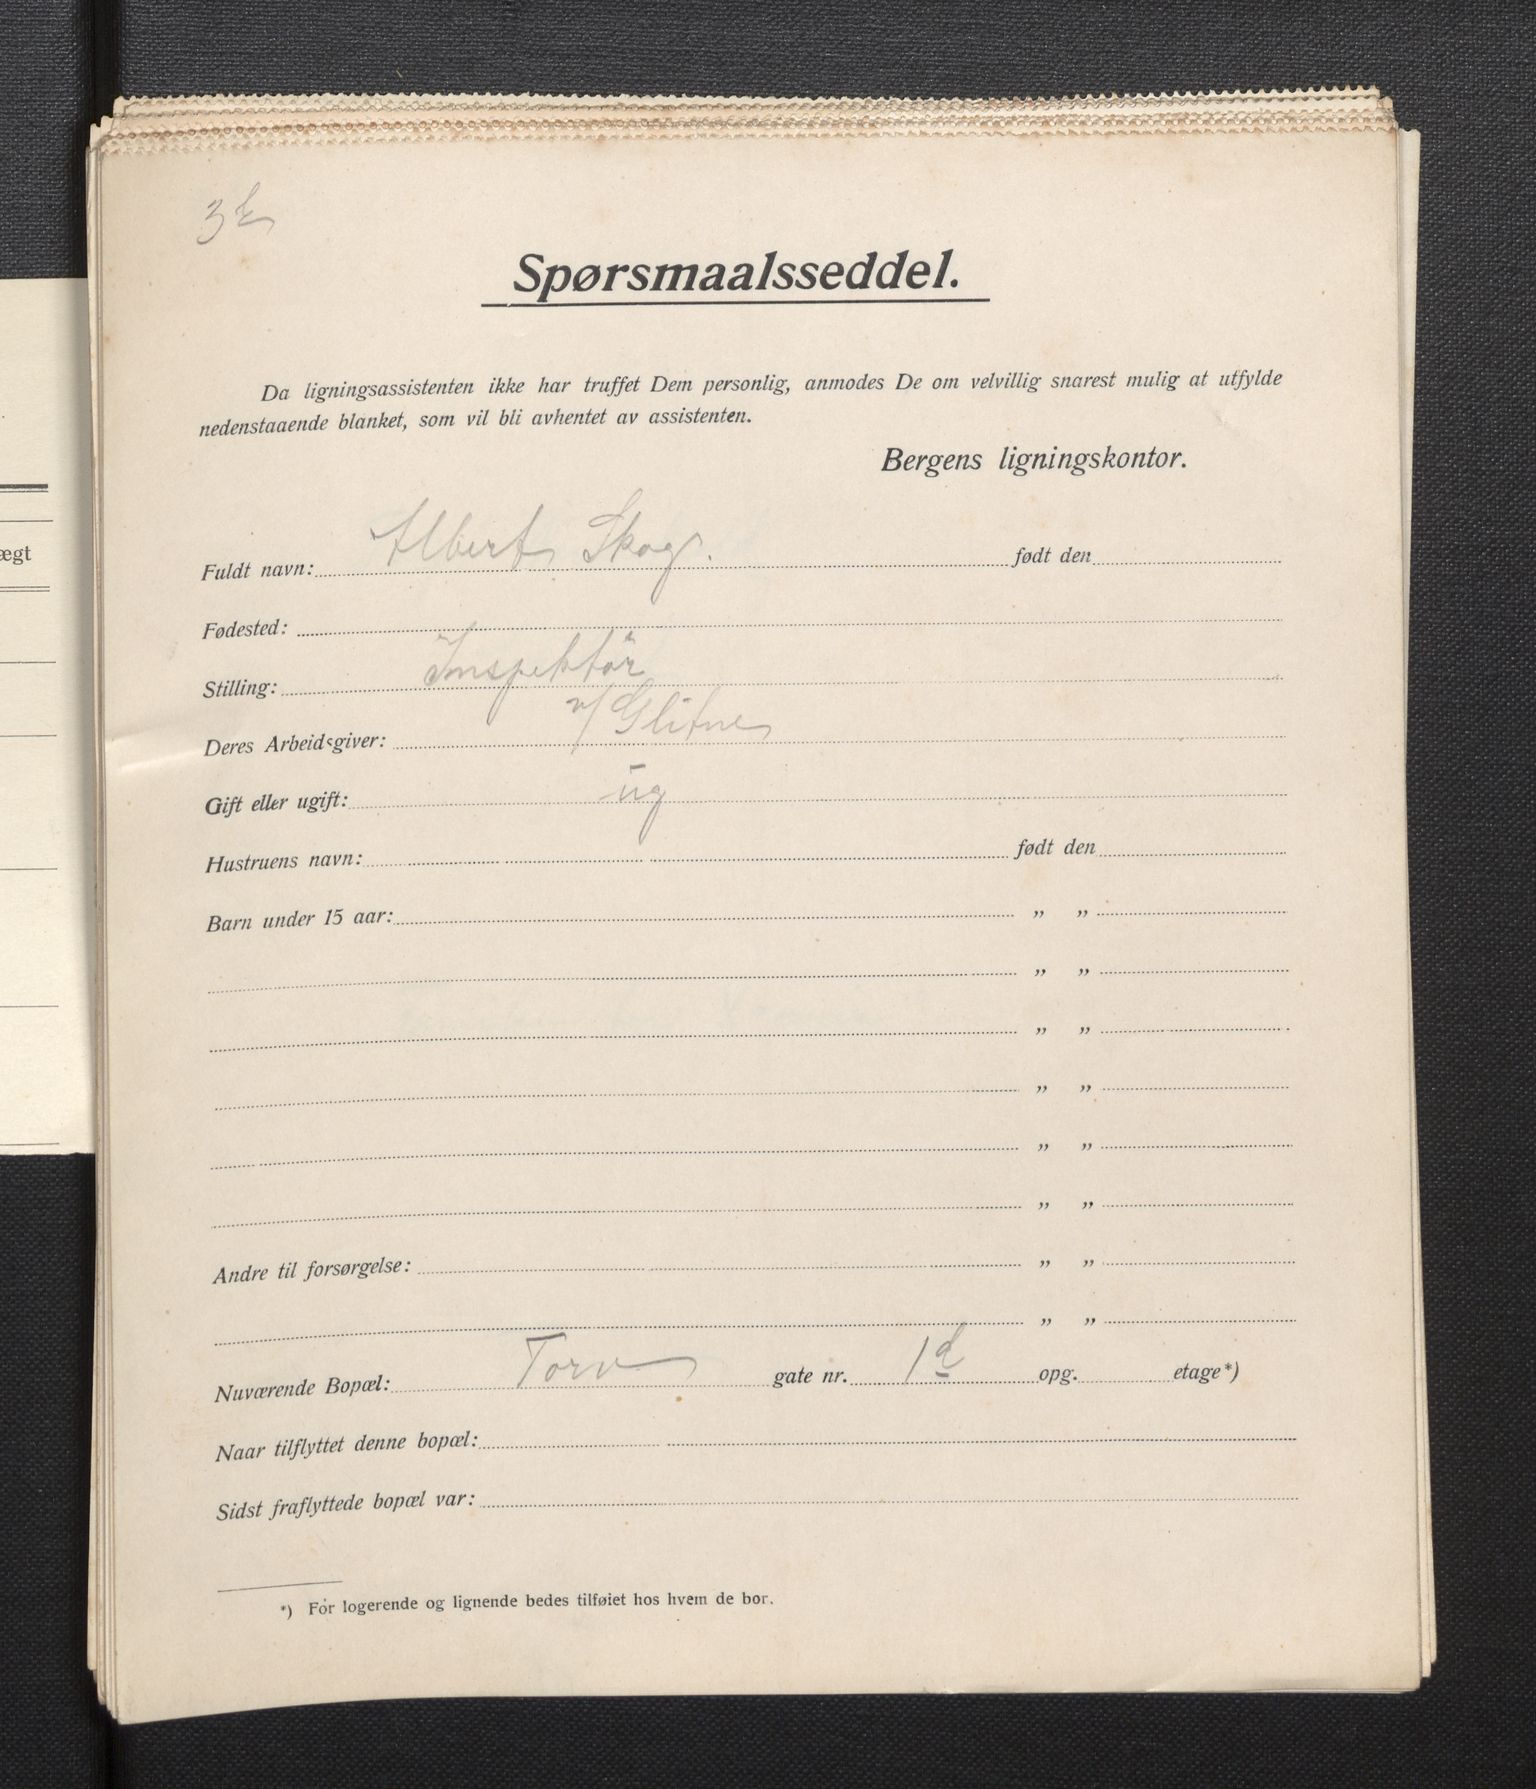 3 E
Spørsmaalsseddel.
Da ligningsassistenten ikke har truffet Dem personlig, anmodes De om velvillig snarest mulig at utfylde
nedenstaaende blanket, som vil bli avhentet av assistenten.
Bergens ligningskontor.
ægt
Fuldt navn: Albert Skog. født den
Fødested:
Stilling: Inspektör
Deres Arbeidsgiver: v/ Glitne
Gift eller ugift: ug
Hustruens navn: født den
Barn under 15 aar: „ „
„ „
„ „
„ „
„ „
„ „
Andre til forsørgelse: „ „
„ „
Nuværende Bopæl: Torv gate nr. 1 d opg. etage*)
Naar tilflyttet denne bopæl:
Sidst fraflyttede bopæl var:
*) For logerende og lignende bedes tilføiet hos hvem de bor.